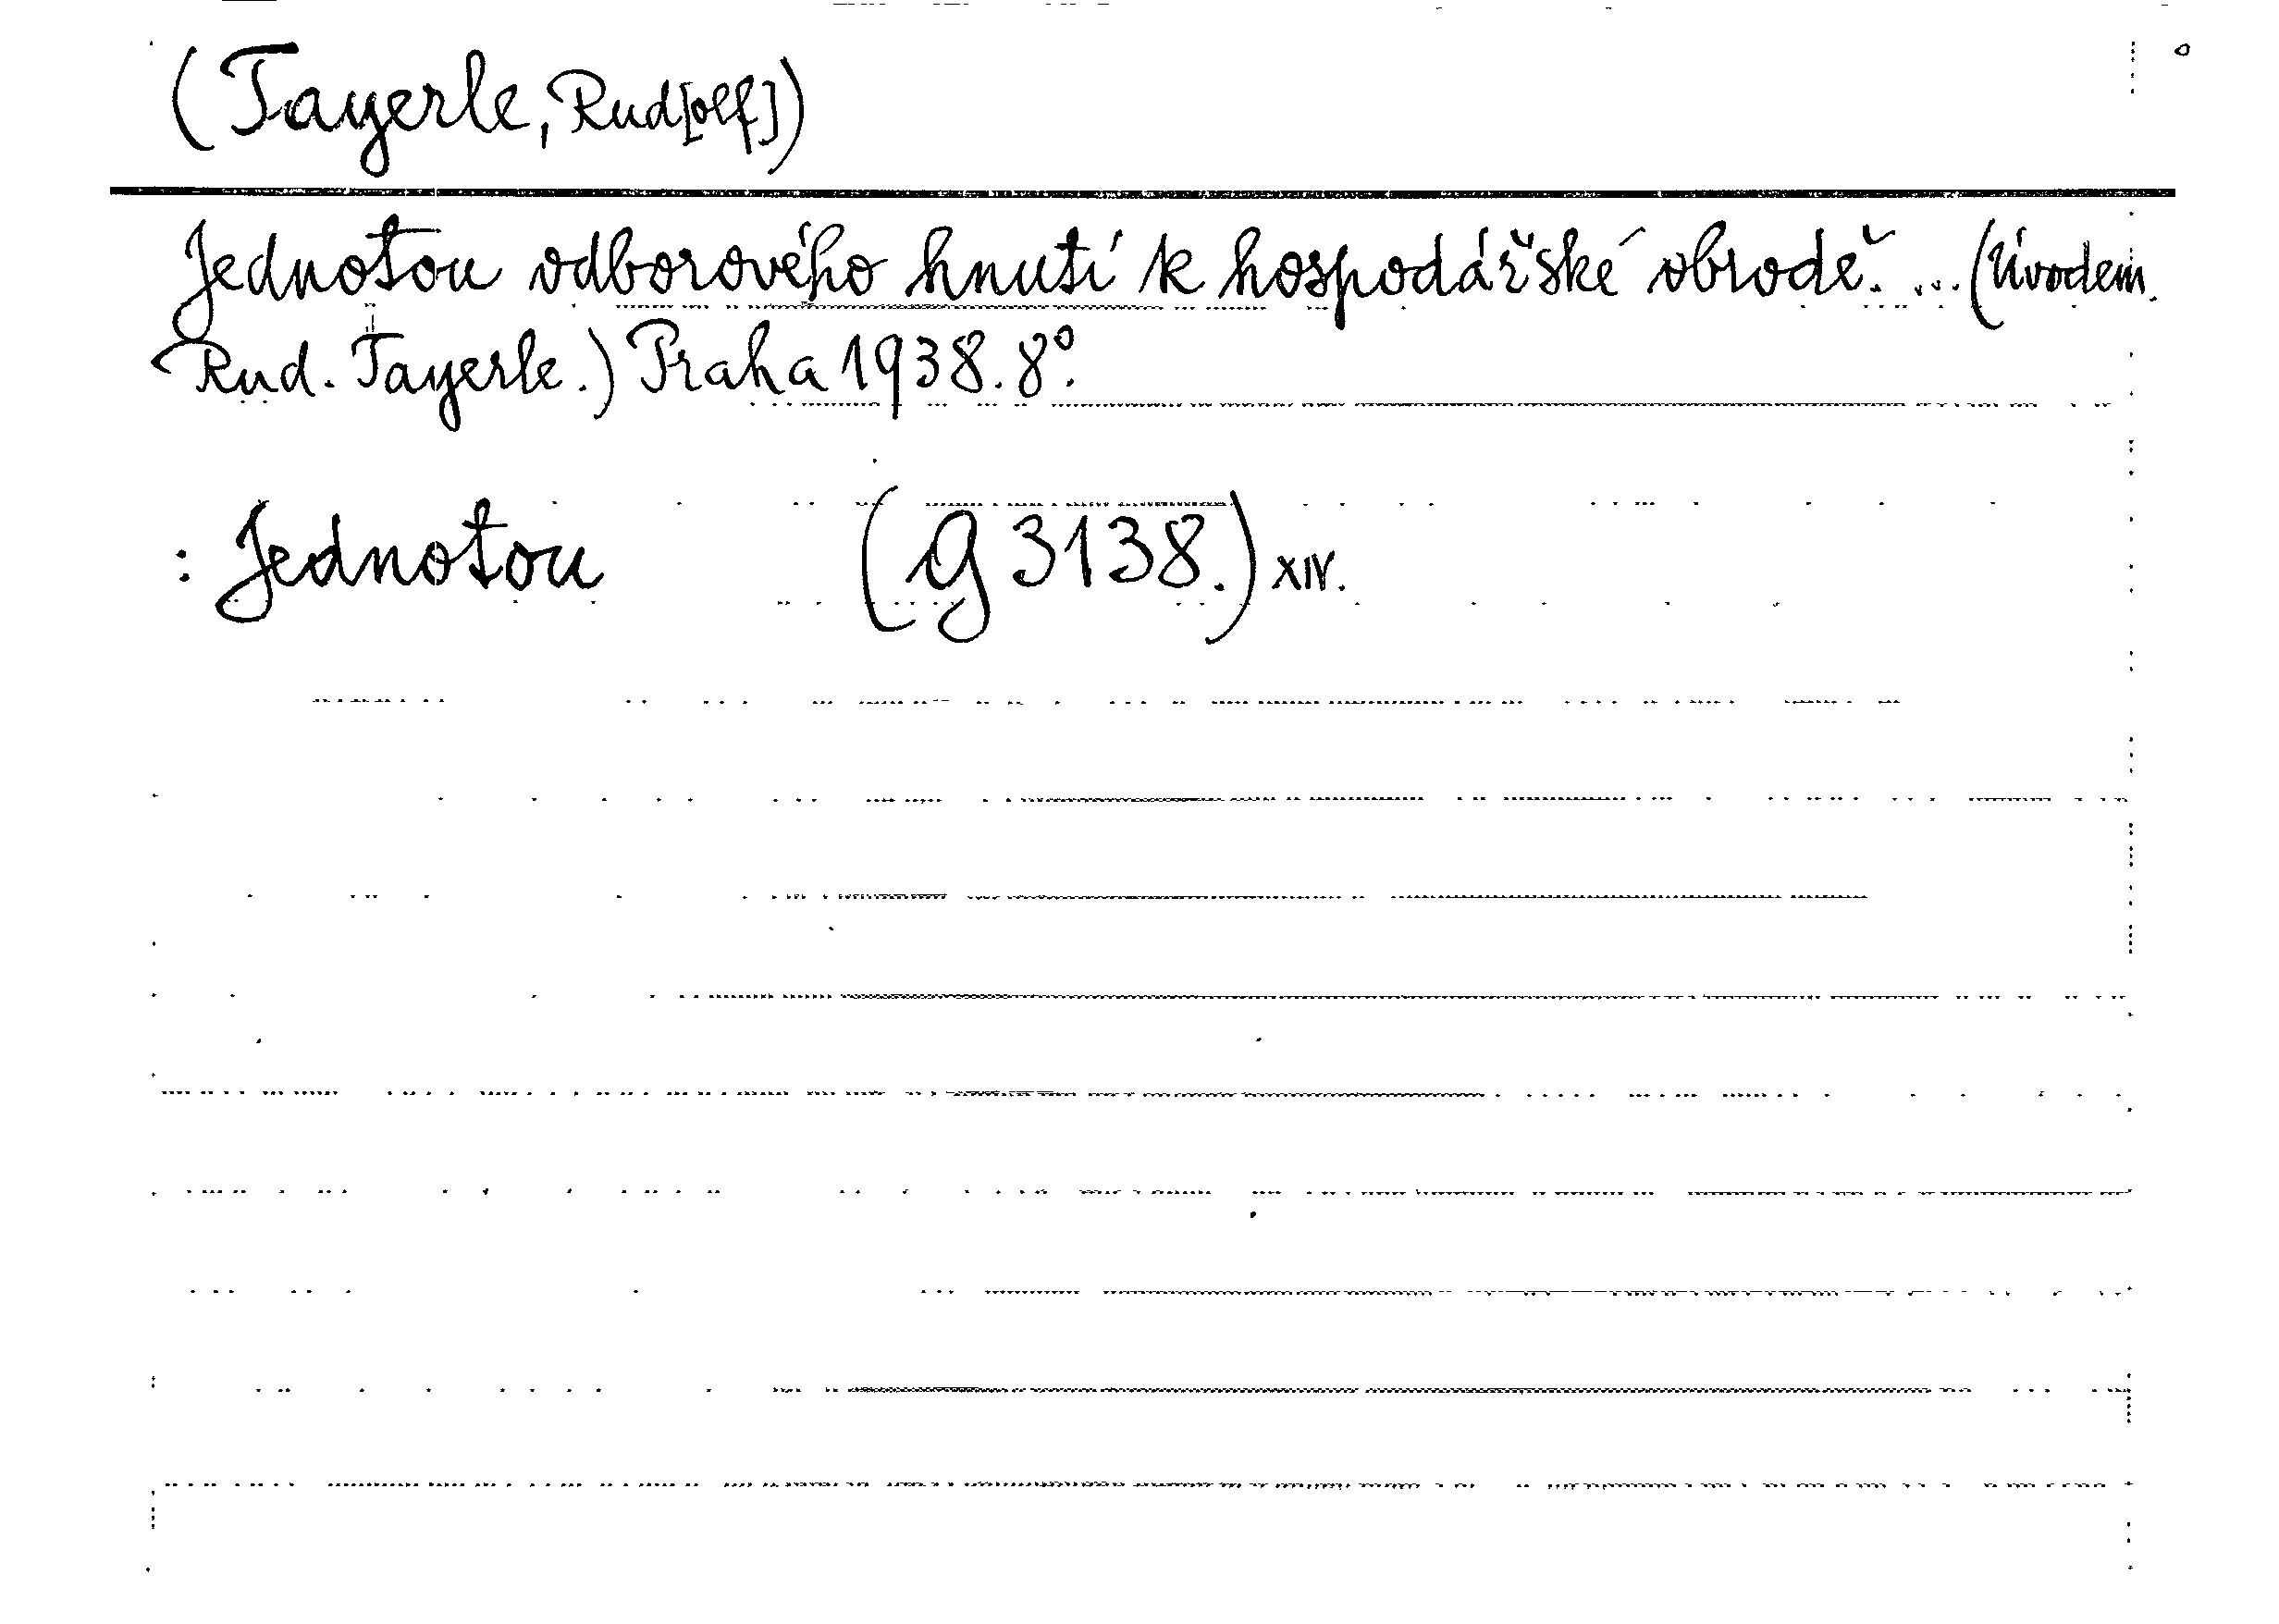 (Tayerle, Rud[olf])
Jednotou odborového hnutí k hospodářské obrodě. ... (Úvodem
Rud. Tayerle.) Praha 1938. 8°.
: Jednotou (g 3138.) XIV.